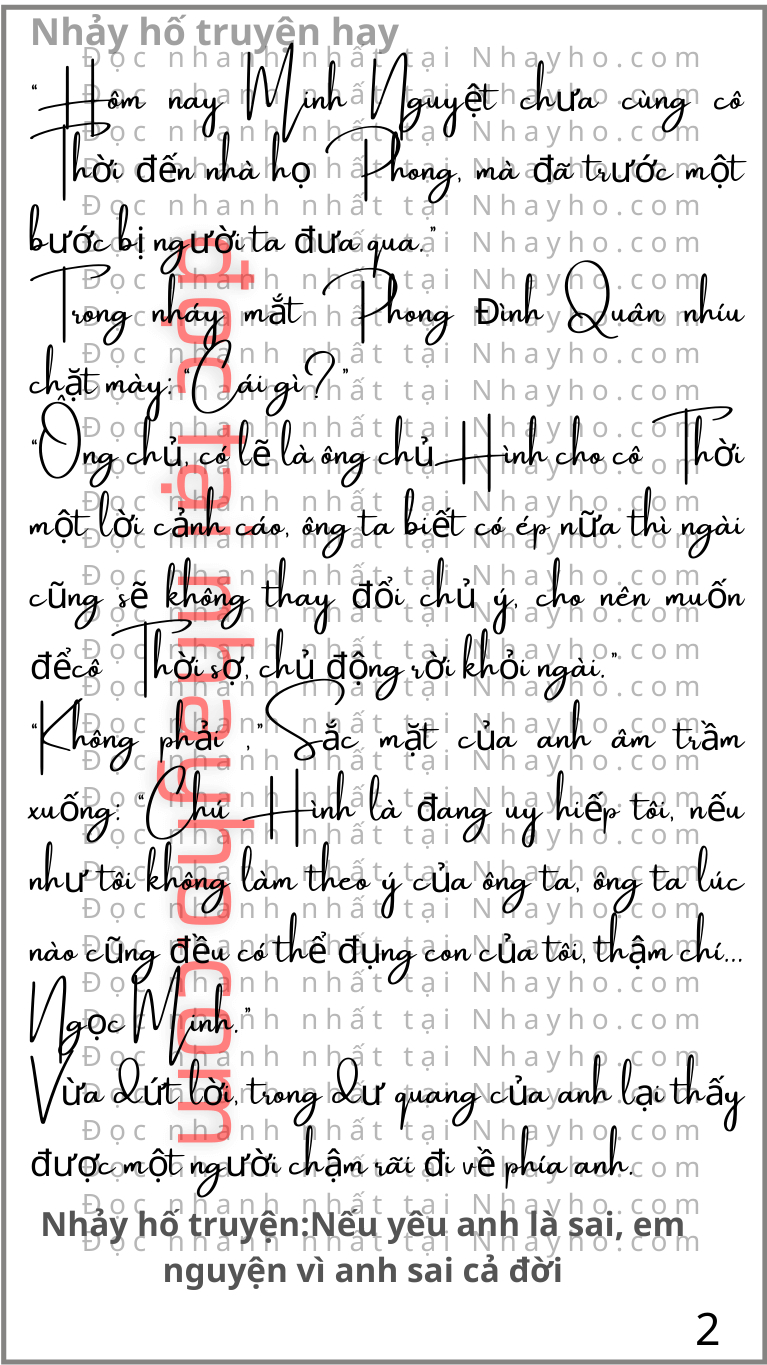 Nhảy hố truyện hay
“Hôm nay Minh Nguyệt chưa cùng cô
Thời đến nhà họ Phong, mà đã trước một
bước bị người ta đưa qua.”
Trong nháy mắt Phong Đình Quân nhíu
chặt mày: “Cái gì?”
“Ông chủ, có lẽ là ông chủ Hình cho cô Thời
một lời cảnh cáo, ông ta biết có ép nữa thì ngài
cũng sẽ không thay đổi chủ ý, cho nên muốn
đểcô Thời sợ, chủ động rời khỏi ngài.”
“Không phải ,” Sắc mặt của anh âm trầm
xuống: “Chú Hình là đang uy hiếp tôi, nếu
như tôi không làm theo ý của ông ta, ông ta lúc
nào cũng đều có thể đụng con của tôi, thậm chí...
Ngọc Minh.”
Vừa dứt lời, trong dư quang của anh lại thấy
được một người chậm rãi đi về phía anh.
Nhảy hố truyện:Nếu yêu anh là sai, em
nguyện vì anh sai cả đời
2
đọc tại nhayho.com
Đọc nhanh nhất tại Nhayho.com